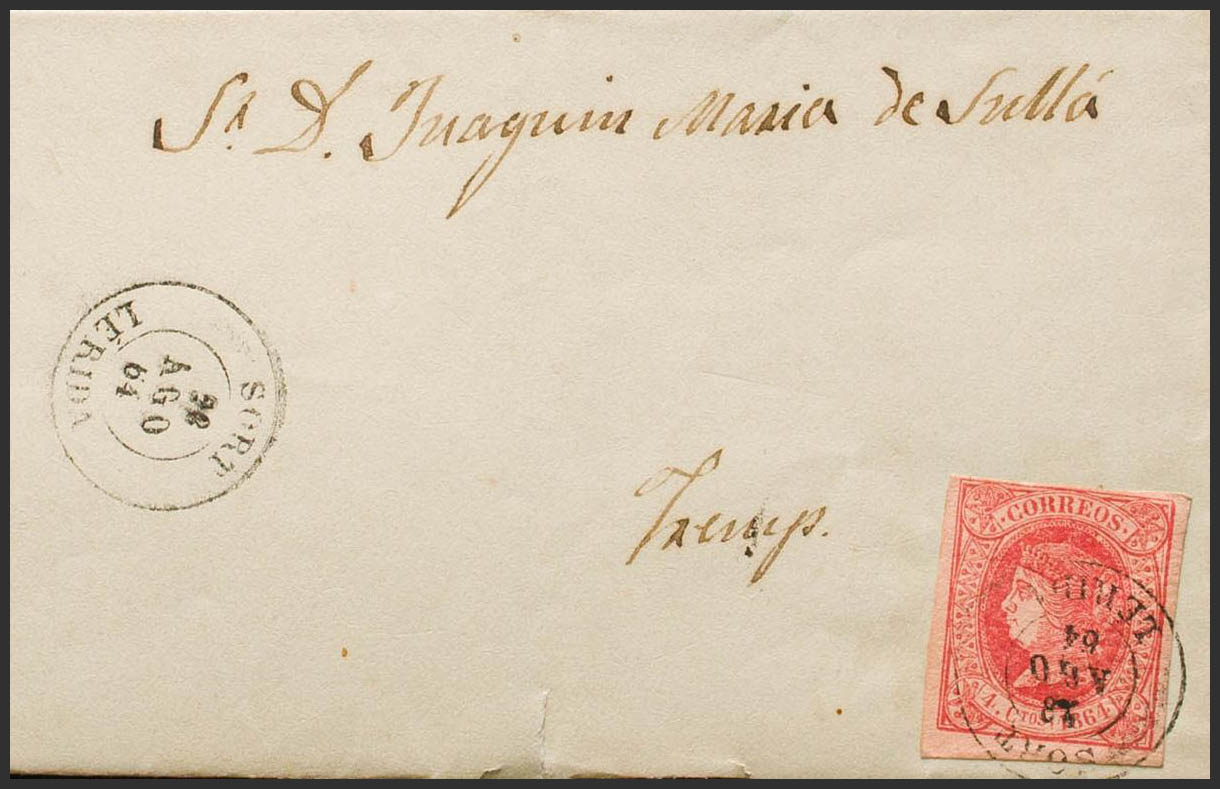 Sr. D. Juaquin Maria de Sullá
SORT
AGO
64
LÉRIDA
Tremp.
CORREOS
4. Ctos. 1864
LERID
64
AGO
SORT